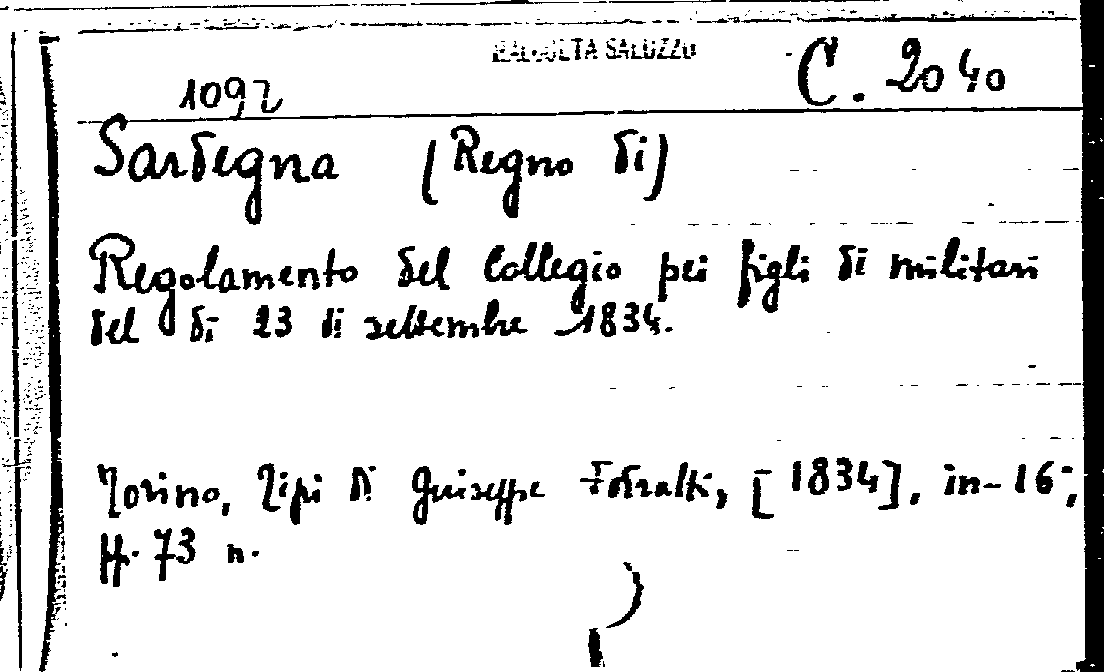 RACCOLTA SALUZZO
C. 2040
1092
Sardegna (Regno di)
Regolamento del Collegio pei figli di militari
del dì 23 di settembre 1834.
Torino, Tipi di Giuseppe Fodratti, [1834], in-16°,
pp. 73 n.